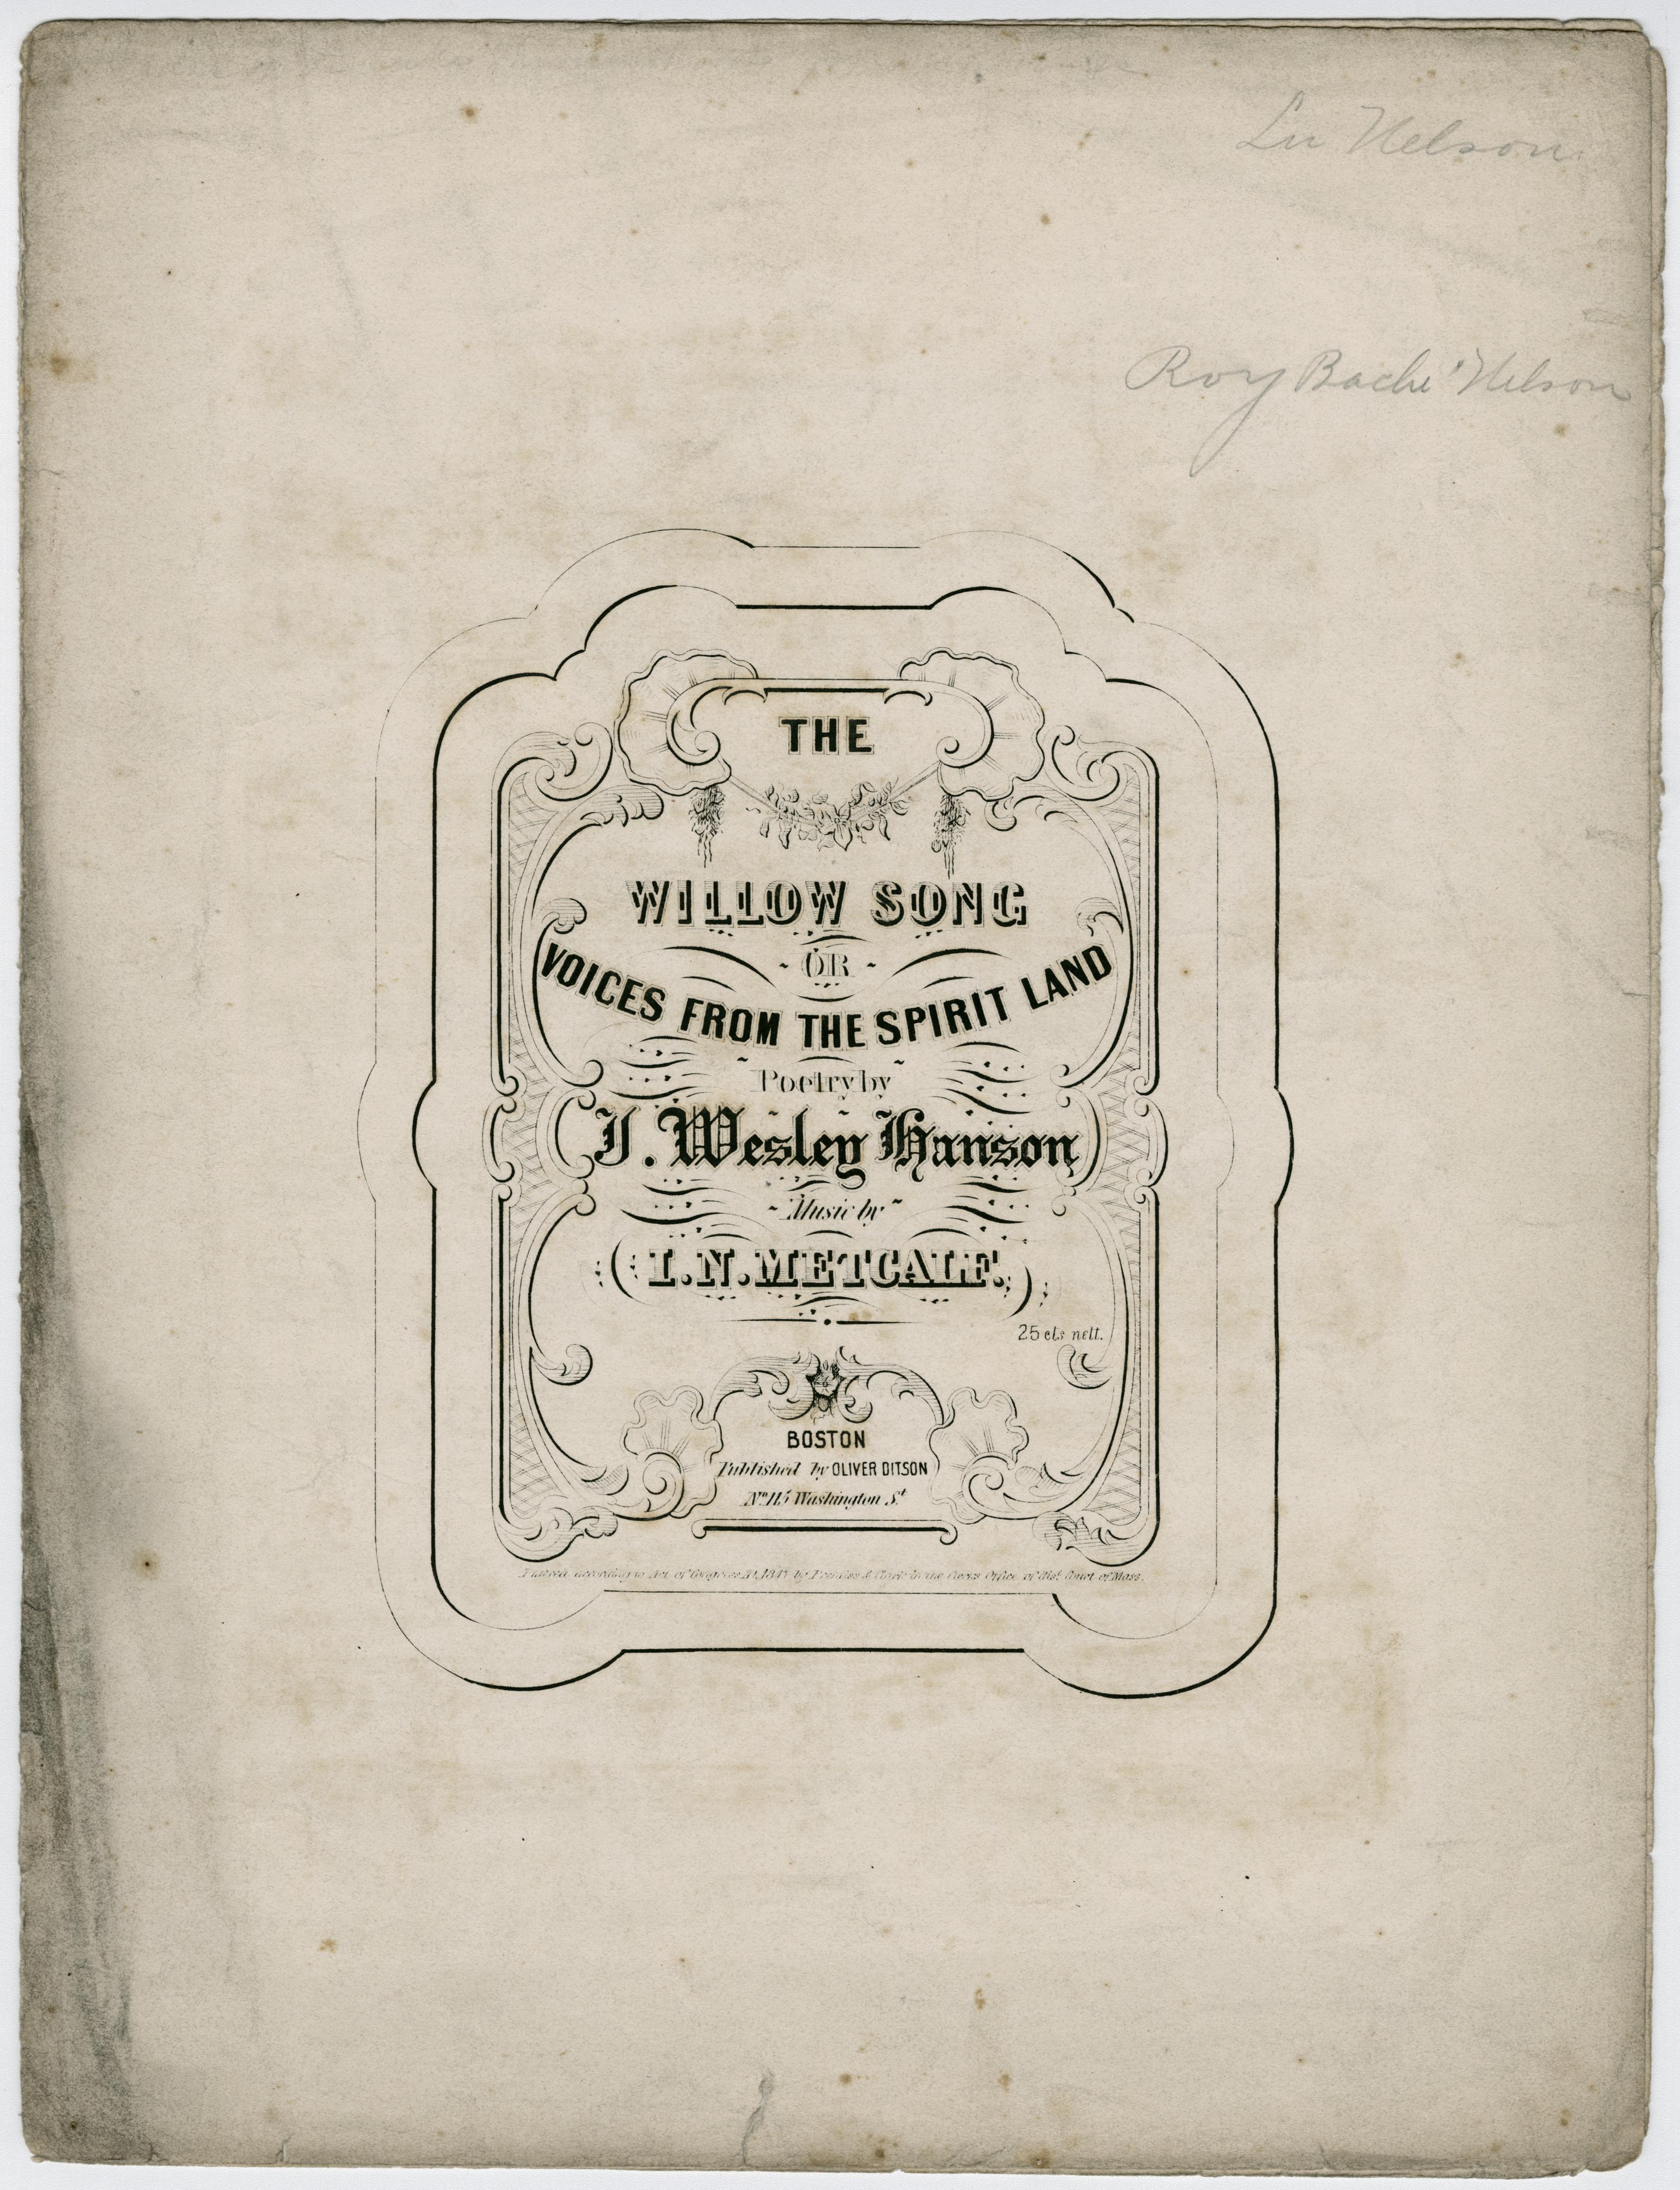 Lu Nelson.
Roy Bache Nelson
THE
WILLOW SONG
OR
VOICES FROM THE SPIRIT LAND
Poetry by
J. Wesley Hanson
Music by
I. N. METCALF.
25 cts nett.
BOSTON
Published by OLIVER DITSON
No. 115 Washington St
Entered according to Act of Congress AD, 1847 by Prentiss & Clark in the Clerks Office of Dist. Court of Mass.